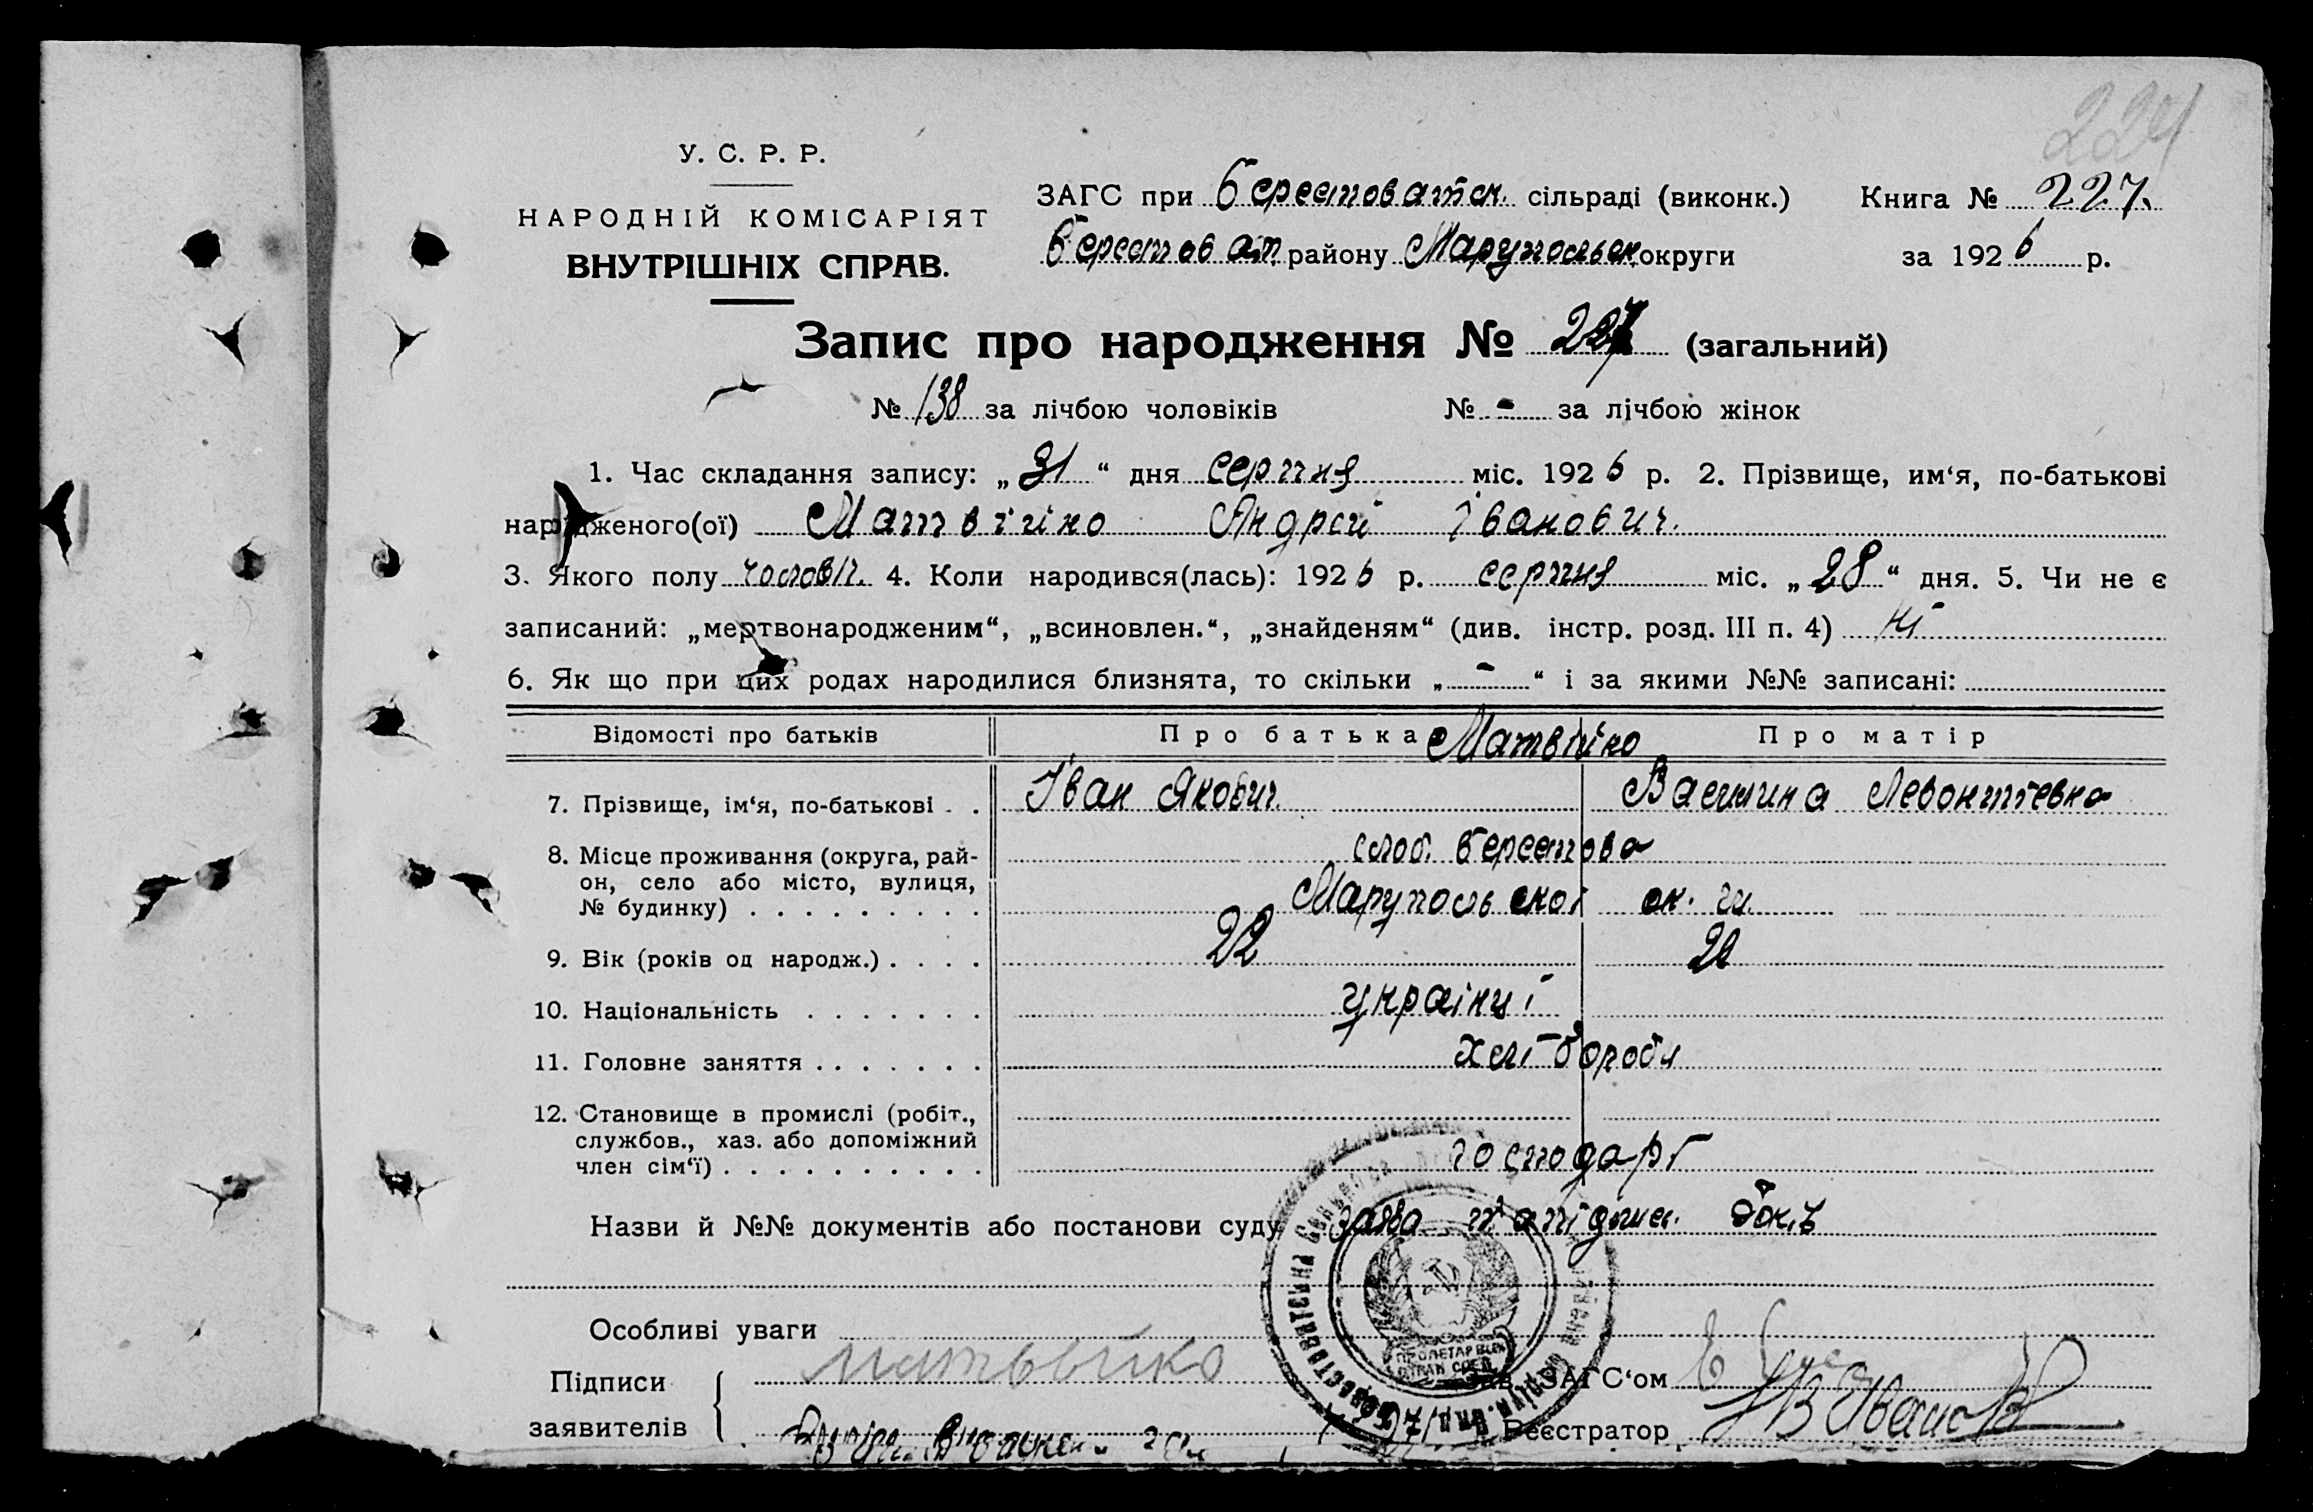 224
У. С. Р. Р.
НАРОДНІЙ КОМІСАРІЯТ
ВНУТРІШНІХ СПРАВ.
ЗАГС при Берестоватськ. сільраді (виконк.) Книга № 227.
Берестоват. району Марупольськ округи за 1926 р.
Запис про народження № 227 (загальний)
№ 138 за лічбою чоловіків № - за лічбою жінок
1. Час складання запису: „31“ дня серпня міс. 1926 р. 2. Прізвище, им‘я, по-батькові
народженого(ої) Матвійко Андрей Іванович.
3. Якого полу чоловіч. 4. Коли народився(лась): 1926 р. серпня міс. „28“ дня. 5. Чи не є
записаний: „мертвонародженим“, „всиновлен.“, „знайденям“ (див. інстр. розд. III п. 4) ні
6. Як що при цих родах народилися близнята, то скільки „-“ і за якими №№ записані:
Відомості про батьків Про батька Матвійко Про матір
7. Прізвище, ім‘я, по-батькові Іван Якович Василина Левонтіевна
8. Місце проживання (округа, рай-
он, село або місто, вулиця,
№ будинку)
слоб. Берестова
Марупольськоі ок.
9. Вік (років од народж.) 22 22
10. Національність украінці
11. Головне заняття хлібороби
12. Становище в промислі (робіт.,
службов., хаз. або допоміжний
член сім‘ї)
господарі
Назви й №№ документів або постанови суду заява
Особливі уваги
Підписи
заявителів
Матвійко
Зав. ЗАГС‘ом
Реєстратор Иванов